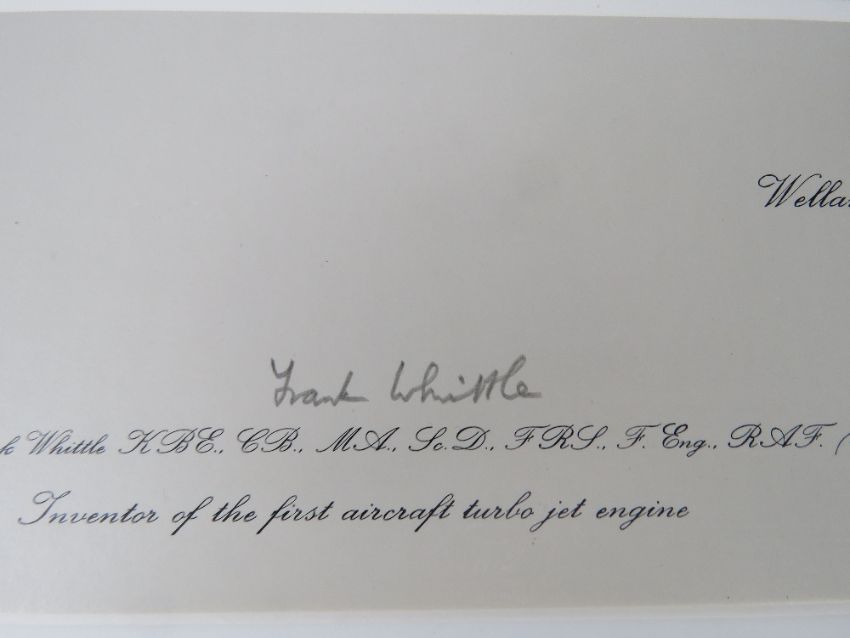 Wella
Frank Whittle
k Whittle KBE., CB., MA., Sc.D., FRS., F. Eng., RAF. (
Inventor of the first aircraft turbo jet engine